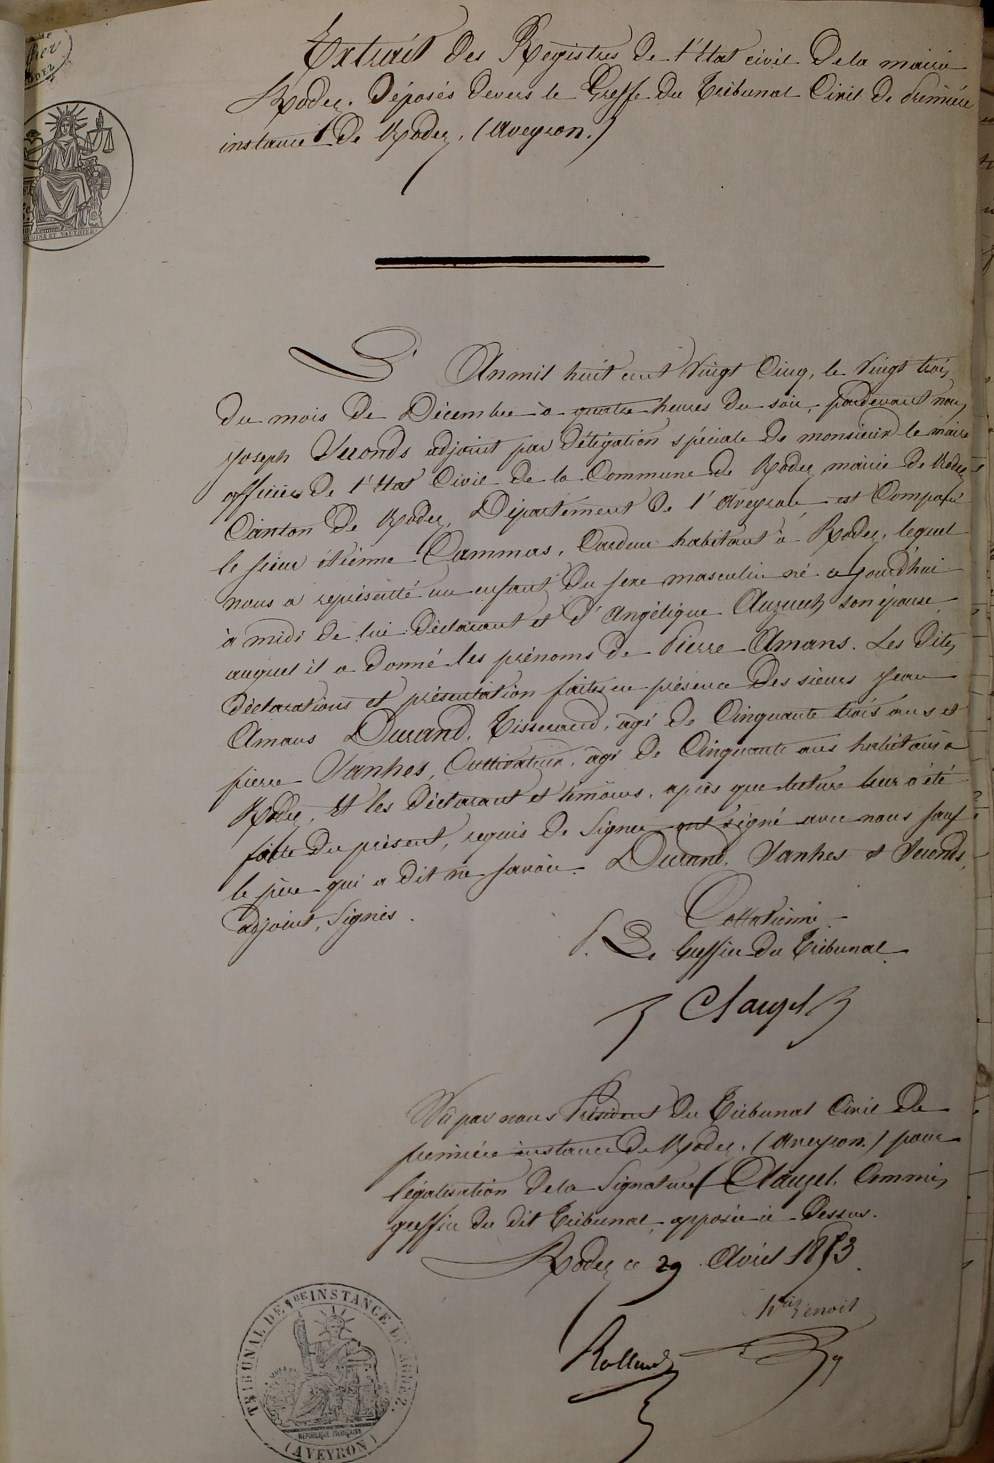 Extrait des Registres de l'état civil de la mairie
Rodez. Déposés devers le Greffe du Tribunal Civil de Première
instance de Rodez. (Aveyron.)
L'An mil huit cent Vingt Cinq, le Vingt trois
du mois de Décembre à quatre heures du soir, pardevant nous
Joseph Seconds adjoint par délégation spéciale de monsieur le maire
officier de l'état Civil de la Commune de Rodez mairie de Rodez
Canton de Rodez, Département de l'Aveyron est Comparu
le sieur étienne Cammas, Cardeur habitant à Rodez, lequel
nous a représenté un enfant du sexe masculin né aujourd'hui
à midi de lui déclarant et d'Angélique Auzuech son épouse
auquel il a donné les prénoms de Pierre Amans. Les dites
déclarations et présentation faites en présence des sieurs Jean
Amans Durand, Tisserand, âgé de Cinquante trois ans et
pierre Vanhes, Cultivateur, âgé de Cinquante ans habitans à
Rodez, Et les déclarant et témoins, après que lecture leur a été
faite du présent, requis de signer ont signé avec nous sauf
le père qui a dit ne savoir. Durand, Vanhes et Seconds,
adjoint, Signés.
Collationné
P. Le Greffier du Tribunal
Clauzel
Vu par nous Président du Tribunal Civil de
première instance de Rodez. (Aveyron.) pour
légalisation de la Signature Clauzel, Commis
greffier du dit Tribunal, apposée ci-dessus.
Rodez ce 29 Avril 1853.
Rolland
TRIBUNAL DE 1ERE INSTANCE DE RODEZ.
RÉPUBLIQUE FRANÇAISE
(AVEYRON)